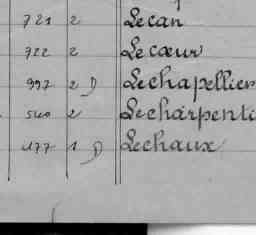 721 2 Lecan
722 2 Lecœur
997 2 D Lechapellier
540 2 Lecharpenti
477 1 D Lechaux